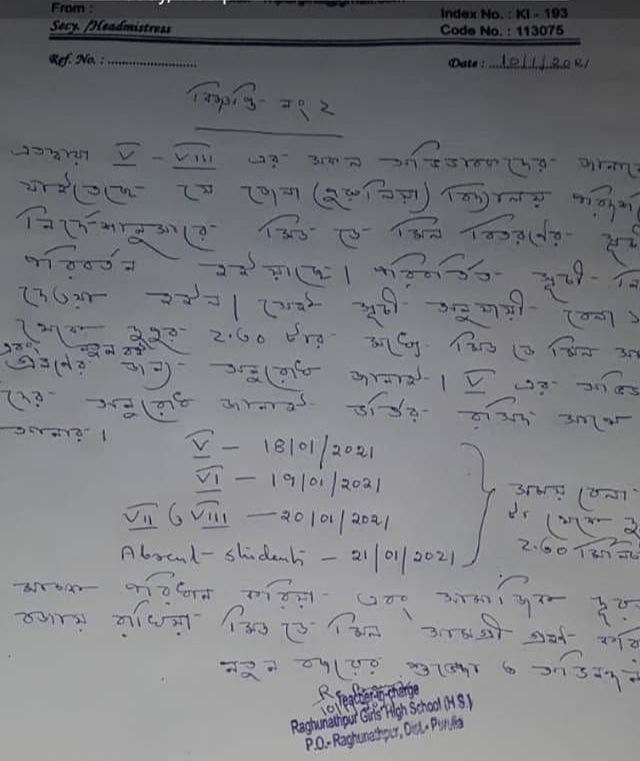 From :
Secy. /Headmistress
Index No. : KI - 193
Code No. : 113075
Ref. No. : ........................
Date : ...10/1/2021
বিজ্ঞপ্তি নং ২
এতদ্বারা V - VIII এর সকল অভিভাবকদের জানানো
যাইতেছে যে জেলা (পুরুলিয়া) বিদ্যালয়
নির্দেশানুসারে মিড ডে মিল বিতরণের
পরিবর্তন হইয়াছে। পরিবর্তিত সূচী
দেওয়া হইল। সেই সূচী অনুযায়ী বেলা
থেকে দুপুর 2.30 টার মধ্যে মিড ডে মিল
এবং
গ্রহণের জন্য অনুরোধ জানাই। V এর
দের অনুরোধ জানাই ভর্তির রসিদ সাথে
আনার।
V - 18/01/2021
VI - 19/01/2021
VII ও VIII - 20/01/2021
Absent students - 21/01/2021
সময় বেলা
থেকে
2.30
মাস্ক পরিধান করিয়া এবং সামাজিক
বজায় রাখিয়া মিড ডে মিল সামগ্রী গ্রহণ
নতুন বছরের শুভেচ্ছা ও অভিনন্দন
Teacher-in-charge
Raghunathpur Girls' High School (H.S.)
P.O.- Raghunathpur, Dist.- Purulia